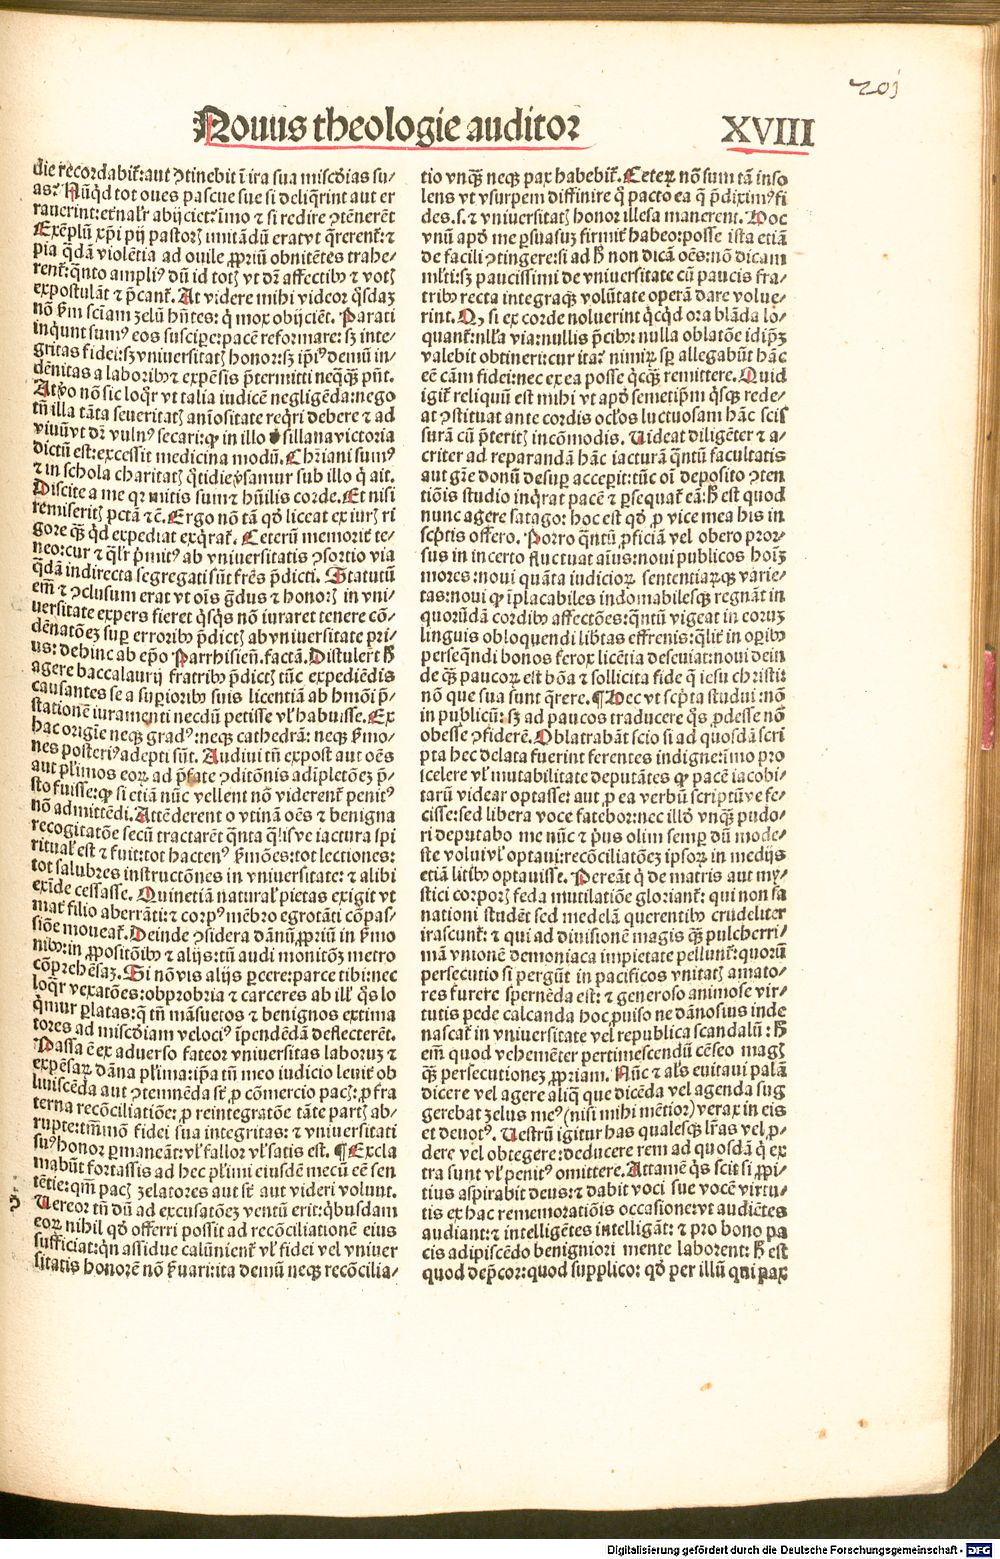 201
Novus theologie auditor XVIII
die recordabit̃: aut ꝯtinebit ĩ ira sua miscďias su-
as? Nũqď tot oues pascue sue si deliq̃rint aut er
rauerint: et̃nalr̃ abijciet: ĩmo ⁊ si redire ꝯtẽnerẽt
Exẽplũ xp̃i pij pastoꝝ imitãdũ erat vt q̃rerent̃: ⁊
pia q̃dã violẽtia ad ouile ꝓpriũ obnitẽtes trahe-
rent̃: q̃nto ampliꝰ dũ id totꝭ vt dr̃ affectibꝰ ⁊ votꝭ
expostulãt ⁊ p̃cant̃. At videre mihi videor q̃sdaʒ
nõ ẜm scĩam zelũ hñtes: q̃ mox obijciẽt. Parati
inqunt sumꝰ eos suscipe: pacẽ reformare: sʒ inte-
gritas fidei: sʒ vniuersitatꝭ honor: sʒ ip̃iꝰ demũ in-
dẽnitas a laboribꝰ ⁊ expẽsis p̃termitti neq̃q̃ʒ pñt.
At ꝟo nõ sic loq̃r vt talia iudicẽ negligẽda: nego
tñ illa tãta seueritatꝭ anĩositate req̃ri debere ⁊ ad
viuũ vt dr̃ vulnꝰ secari: qꝫ in illo sillana victoria
dictũ est: excessit medicina modũ. Chr̃iani sumꝰ
⁊ in schola charitatꝭ q̃tidie ꝟsamur sub illo q̃ ait.
Discite a me qr mitis sum ⁊ hũilis corde. Et nisi
remiseritꝭ pctã ⁊c̃. Ergo nõ tã qď liceat ex iurꝭ ri
gore q̃ʒ q̃d expediat exq̃rat̃. Ceterũ memorit̃ te-
neo: cur ⁊ q̃lr̃ p̃mitꝰ ab vniuersitatis ꝯsortio via
q̃dã indirecta segregati sũt fr̃es p̃dicti. Statutũ
em̃ ⁊ ꝯclusum erat vt oĩs g̃dus ⁊ honorꝭ in vni-
uersitate expers fieret q̃sq̃s nõ iuraret tenere cõ-
dẽnatõeʒ sup erroribꝰ p̃dictꝭ ab vniuersitate pri-
us: dehinc ab ep̃o Parrhisieñ. factã. Distulerũt ħ
agere baccalaurij fratribꝰ p̃dictꝭ tũc expediẽdis
causantes se a supioribꝰ suis licentiã ab hmõi p̃-
statiõne iuramẽti necdũ petisse vl̃ habuisse. Ex
hac origĩe neqʒ gradꝰ: neqʒ cathedrã: neqʒ ẜmo-
nes posteriꝰ adepti sũt. Audiui tñ expost aut oẽs
aut pl̃imos eoꝝ ad p̃fate ꝯditõnis adĩpletõeʒ p̃-
sto fuisse: qꝫ si etiã nũc vellent nõ viderent̃ penitꝰ
nõ admittẽdi. Attẽderent o vtinã oẽs ⁊ benigna
recogitatõe secũ tractarẽt q̃nta q̃lisve iactura spi
ritual̃ est ⁊ fuit: tot hactenꝰ ẜmões: tot lectiones:
tot salubres instructõnes in vniuersitate: ⁊ alibi
exĩde cessasse. Quinetiã natural̃ pietas exigit vt
mat̃ filio aberrãti: ⁊ corpꝰ mẽbro egrotãti cõpas-
siõe moueat̃. Deinde ꝯsidera dãnũ ꝓpriũ in ẜmo
nibꝰ: in ꝓpositõibꝰ ⁊ alijs: tũ audi monitõʒ metro
cõprehẽsaʒ. Si nõ vis alijs ꝑcere: parce tibi: nec
loq̃r vexatões: obprobria ⁊ carceres ab ill̃ q̃s lo
q̃mur ꝑlatas: q̃ tñ mãsuetos ⁊ benignos extima
tores ad miscďiam velociꝰ ĩpendẽdã deflecterẽt.
Passa ẽ ex aduerso fateor vniuersitas laboruʒ ⁊
expẽsaꝝ dãna pl̃ima: ip̃a tñ meo iudicio leuit̃ ob
liuiscẽda aut ꝯtemnẽda sũt ꝓ cõmercio pacꝭ: ꝓ fra
terna recõciliatiõe: ꝓ reintegratõe tãte partꝭ ab-
rupte: tm̃mõ fidei sua integritas: ⁊ vniuersitati
suꝰ honor ꝑmaneãt: vl̃ fallor vl̃ satis est. ¶ Excla
mabũt fortassis ad hec pl̃imi eiusdẽ mecũ eẽ sen
tẽtie: qm̃ pacꝭ zelatores aut sũt aut videri volunt.
Uereor tñ dũ ad excusatõeʒ ventũ erit: q̃busdam
eoꝝ nihil qď offerri possit ad recõciliationẽ eius
sufficiat: q̃n assidue calũnient̃ vl̃ fidei vel vniuer
sitatis honorẽ nõ ẜuari: ita demũ neqʒ recõcilia-
tio vnq̃ʒ neqʒ pax habebit̃. Ceteꝝ nõ sum tã inso
lens vt vsurpem diffinire q̃ pacto ea q̃ p̃diximꝰ fi
des .s. ⁊ vniuersitatꝭ honor illesa manerent. Hoc
vnũ apď me ꝑsuasuʒ firmit̃ habeo: posse ista etiã
de facili ꝯtingere: si ad ħ non dicã oẽs: nõ dicam
ml̃ti: sʒ paucissimi de vniuersitate cũ paucis fra-
tribꝰ recta integraqʒ volũtate operã dare volue-
rint. Qꝫ si ex corde noluerint q̃cq̃d ora blãda lo-
quant̃: nll̃a via: nullis p̃cibꝰ: nulla oblatõe idip̃ʒ
valebit obtineri: cur ita? nimiꝝ sp̃ allegabũt hãc
eẽ cãm fidei: nec ex ea posse q̃cq̃ʒ remittere. Quid
igit̃ reliquũ est mihi vt apď semetip̃m q̃sqʒ rede-
at ꝯstituat ante cordis ocl̃os luctuosam hãc scis
surã cũ p̃teritꝭ incõmodis. Uideat diligẽter ⁊ a-
criter ad reparandã hãc iacturã q̃ntũ facultatis
aut gr̃e donũ desup acceꝑit: tũc oĩ deposito ꝯten
tiõis studio inq̃rat pacẽ ⁊ ꝑsequat̃ eã: ħ est quod
nunc agere satago: hoc est qď ꝓ vice mea his in
scp̃tis offero. Porro q̃ntũ ꝓficiã vel obero pror-
sus in incerto fluctuat aĩus: noui publicos hoĩʒ
mores: noui quãta iudicioꝝ sententiaꝝqʒ varie-
tas: noui qꝫ ĩplacabiles indomabilesqʒ regnãt in
quorũdã cordibꝰ affectões: q̃ntũ vigeat in eoruʒ
linguis obloquendi lib̃tas effrenis: q̃lit̃ in oꝑibꝰ
perseq̃ndi bonos ferox licẽtia deseuiat: noui dein
de q̃ʒ paucoꝝ est bõa ⁊ sollicita fide q̃ iesu christi:
nõ que sua sunt q̃rere. ¶ Hec vt scp̃ta studui: nõ
in publicũ: sʒ ad paucos traducere q̃s ꝓdesse nõ
obesse ꝯfiderẽ. Oblatrabãt scio si ad quosdã scri
pta hec delata fuerint ferentes indigne: ĩmo pro
scelere vl̃ mutabilitate deputãtes qꝫ pacẽ iacobi-
tarũ videar optasse: aut ꝓ ea verbũ scriptũve fe-
cisse: sed libera voce fatebor: nec illď vnq̃ʒ pudo-
ri deputabo me nũc ⁊ p̃us olim semp dũ mode-
ste volui vl̃ optaui: recõciliatõeʒ ipsoꝝ in medijs
etiã litibꝰ optauisse. Pereãt q̃ de matris aut my-
stici corporꝭ feda mutilatiõe gloriant̃: qui non sa
nationi studẽt sed medelã querentibꝰ crudeliter
irascunt̃: ⁊ qui ad diuisionẽ magis q̃ʒ pulcherri-
mã vnionẽ demoniaca impietate pellunt̃: quorũ
persecutio si pergũt in pacificos vnitatꝭ amato-
res furere spernẽda est: ⁊ generoso animose vir-
tutis pede calcanda hoc ꝓuiso ne dãnosius inde
nascat̃ in vniuersitate vel republica scandalũ: ħ
em̃ quod vehemẽter pertimescendũ cẽseo magꝭ
q̃ʒ persecutioneʒ ꝓpriam. Nũc ⁊ al̃s euitaui palã
dicere vel agere aliq̃ que dicẽda vel agenda sug
gerebat zelus meꝰ (nisi mihi mẽtior) verax in eis
et deuotꝰ. Uestrũ igitur has qualesqʒ lr̃as vel ꝓ-
dere vel obtegere: deducere rem ad quosdã q̃ ex
tra sunt vl̃ penitꝰ omittere. Attamẽ q̃s scit si ꝓpi-
tius aspirabit deus: ⁊ dabit voci sue vocẽ virtu-
tis ex hac rememoratiõis occasione: vt audiẽtes
audiant: ⁊ intelligẽtes intelligãt: ⁊ pro bono pa
cis adipiscẽdo benigniori mente laborent: ħ est
quod dep̃cor: quod supplico: qď per illũ qui pax
Digitalisierung gefördert durch die Deutsche Forschungsgemeinschaft - DFG